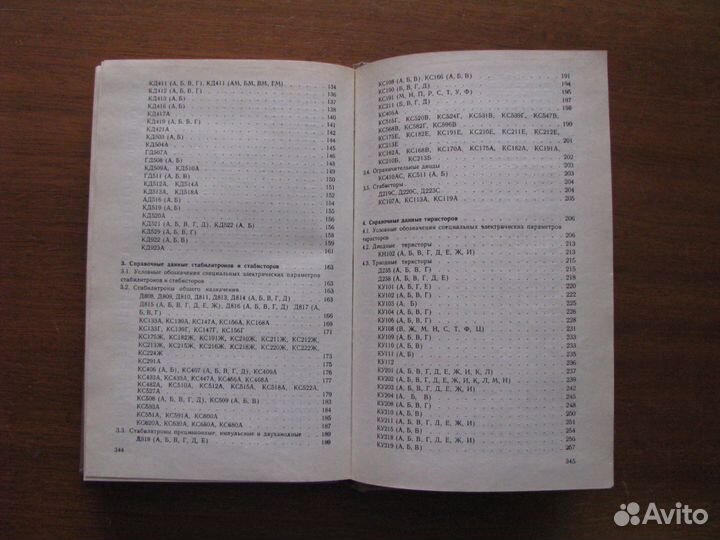 КД411 (А, Б, В, Г), КД411 (АМ, БМ, ВМ, ГМ) 134
КД412 (А, Б, В, Г) 136
КД413 (А, Б) 138
КД416 (А, Б) 140
КД417А 141
КД419 (А, Б, В, Г)
КД421А 143
КД503 (А, Б) 144
КД504А
ГД507А
ГД508 (А, Б)
КД509А, КД510А
ГД511 (А, Б, В)
КД512А, КД514А
КД513А, КД518А
КД519 (А, Б)
КД520А
КД521 (А, Б, В, Г, Д), КД522 (А, Б) 157
КД529 (А, Б, В, Г) 158
КД922 (А, Б, В) 159
КД923А 161
3. Справочные данные стабилитронов и стабисторов 163
3.1. Условные обозначения специальных электрических параметров
стабилитронов и стабисторов 163
3.2. Стабилитроны общего назначения 163
Д808, Д809, Д810, Д811, Д813, Д814 (А, Б, В, Г, Д)
Д815 (А, Б, В, Г, Д, Е, Ж), Д816 (А, Б, В, Г, Д) Д817 (А,
Б, В, Г) 166
КС133А, КС139А, КС147А, КС156А, КС168А 169
КС133Г, КС139Г, КС147Г, КС156Г 171
КС175Ж, КС182Ж, КС191Ж, КС210Ж, КС211Ж, КС212Ж,
КС213Ж, КС215Ж, КС216Ж, КС218Ж, КС220Ж, КС222Ж,
КС224Ж 173
КС291А 175
КС406 (А, Б), КС407 (А, Б, В, Г, Д), КС409А 176
КС433А, КС439А, КС447А, КС456А, КС468А 177
КС482А, КС510А, КС512А, КС515А, КС518А, КС522А,
КС527А 179
КС508 (А, Б, В, Г, Д), КС509 (А, Б, В) 183
КС533А 184
КС551А, КС591А, КС600А 186
КС620А, КС630А, КС650А, КС680А 187
3.3. Стабилитроны прецизионные, импульсные и двуханодные 189
Д818 (А, Б, В, Г, Д, Е) 189
344
КС108 (А, Б, В), КС166 (А, Б, В) 191
КС190 (Б, В, Г, Д) 194
КС191 (М, Н, П, Р, С, Т, У, Ф) 195
КС211 (Б, В, Г, Д) 197
КС405А 198
КС515Г, КС520В, КС524Г, КС531В, КС539Г, КС547В,
КС568В, КС582Г, КС596В 199
КС175Е, КС182Е, КС191Е, КС210Е, КС211Е, КС212Е,
КС213Е 201
КС162А, КС168В, КС170А, КС175А, КС182А, КС191А,
КС210Б, КС213Б 202
3.4. Ограничительные диоды 203
КС410АС, КС511 (А, Б) 203
3.5. Стабисторы 204
Д219С, Д220С, Д223С 204
КС107А, КС113А, КС119А 205
4. Справочные данные тиристоров 206
4.1. Условные обозначения специальных электрических параметров
тиристоров 206
4.2. Диодные тиристоры 213
КН102 (А, Б, В, Г, Д, Е, Ж, И) 213
4.3. Триодные тиристоры 215
Д235 (А, Б, В, Г) 215
Д238 (А, Б, В, Г, Д, Е)
КУ101 (А, Б, Г, Е)
КУ103 (А, В)
КУ104 (А, Б, В, Г)
КУ106 (А, Б, В, Г)
КУ108 (В, Ж, М, Н, С, Т, Ф, Ц) 231
КУ109 (А, Б, В, Г)
КУ110 (А, Б, В) 235
КУ111 (А, Б) 237
КУ112
КУ201 (А, Б, В, Г, Д, Е, Ж, И, К, Л)
КУ202 (А, Б, В, Г, Д, Е, Ж, И, К, Л, М, Н)
КУ204 (А, Б, В)
КУ208 (А, Б, В, Г)
КУ210 (А, Б, В)
КУ211 (А, Б, В, Г, Д, Е, Ж, И)
КУ215 (А, Б, В)
КУ218 (А, Б, В, Г, Д, Е, Ж, И)
КУ219 (А, Б, В) 257
345
Avito